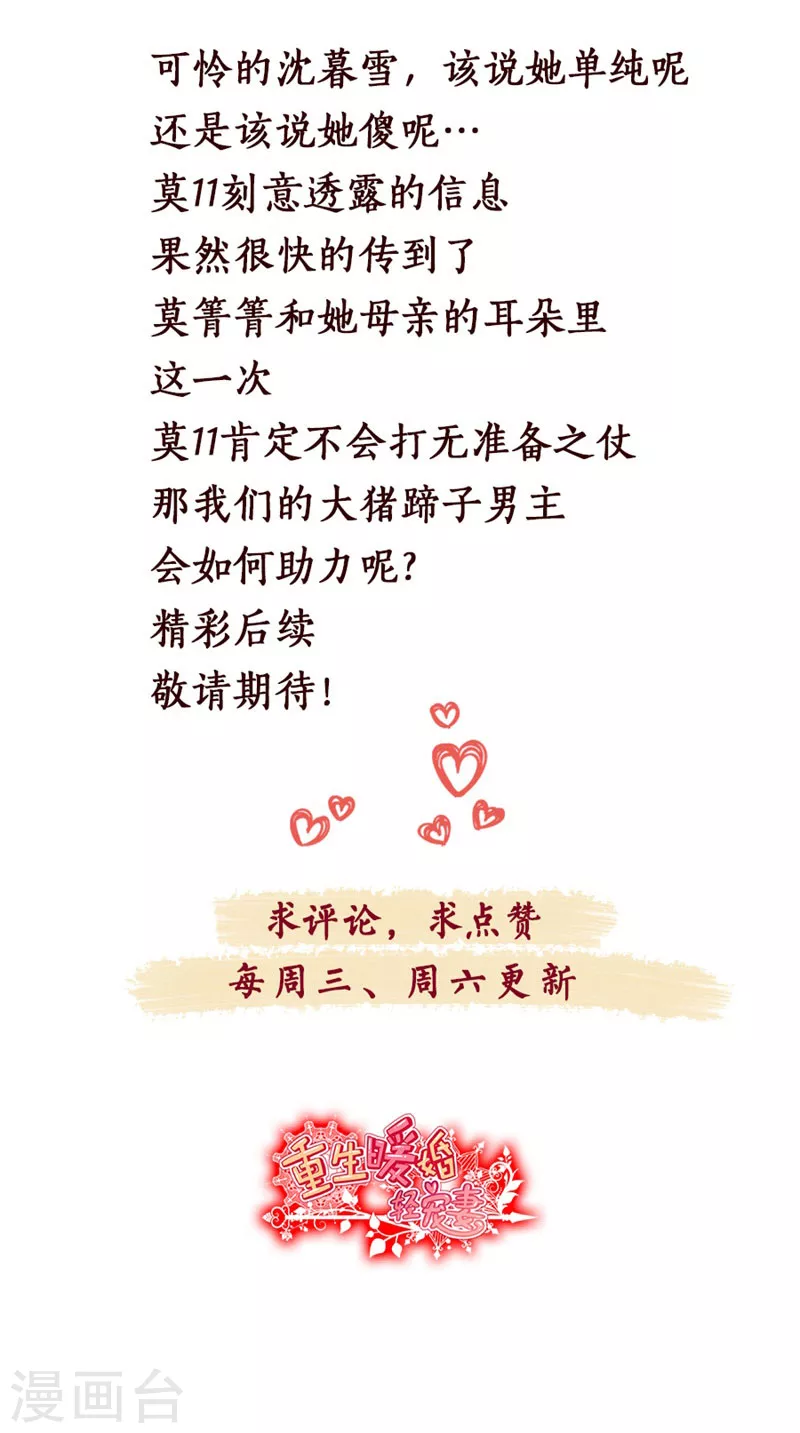 可怜的沈暮雪，该说她单纯呢
还是该说她傻呢…
莫11刻意透露的信息
果然很快的传到了
莫箐箐和她母亲的耳朵里
这一次
莫11肯定不会打无准备之仗
那我们的大猪蹄子男主
会如何助力呢？
精彩后续
敬请期待！
求评论，求点赞
每周三、周六更新
重生暖婚
轻宠妻
漫画台